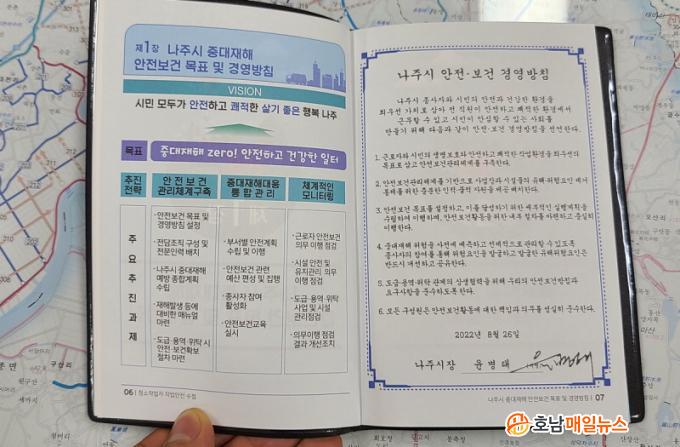 제1장 나주시 중대재해
안전보건 목표 및 경영방침
VISION
시민 모두가 안전하고 쾌적한 살기 좋은 행복 나주
목표 중대재해 zero! 안전하고 건강한 일터
추진
전략
안 전 보 건
관리체계구축
중대재해대응
통 합 관 리
체계적인
모니터링
주
요
추
진
과
제
·안전보건 목표 및
경영방침 설정
·전담조직 구성 및
전문인력 배치
·나주시 중대재해
예방 종합계획
수립
·재해발생 등에
대비한 매뉴얼
마련
·도급·용역·위탁 시
안전·보건확보
절차 마련
·부서별 안전계획
수립 및 이행
·안전보건 관련
예산 편성 및 집행
·종사자 참여
활성화
·안전보건교육
실시
·근로자 안전보건
의무 이행 점검
·시설 안전 및
유지관리 의무
이행 점검
·도급·용역·위탁
사업 및 시설
관리점검
·의무이행 점검
결과 개선조치
06 | 청소작업자 작업안전 수첩
나주시 안전·보건 경영방침
나주시 종사자와 시민의 안전과 건강한 환경을
최우선 가치로 삼아 전 직원이 안전하고 쾌적한 환경에서
근무할 수 있고 시민이 안심할 수 있는 사회를
만들기 위해 다음과 같이 안전·보건 경영방침을 선언한다.
1. 근로자와 시민의 생명보호와 안전하고 쾌적한 작업환경을 최우선의
목표로 삼고 안전보건관리체계를 구축한다.
2. 안전보건관리체계를 기반으로 사업장과 시설물의 유해·위험요인 제거
통제를 위한 충분한 인적·물적 자원을 제공 배치한다.
3. 안전보건 목표를 설정하고, 이를 달성하기 위한 세부적인 실행계획을
수립하여 이행하며, 안전보건활동을 위한 내부 절차를 마련하고 충실히
이행한다.
4. 중대재해 위험을 사전에 예측하고 선제적으로 관리할 수 있도록
종사자의 참여를 통해 위험요인을 발굴하고 발굴한 유해위험요인은
반드시 개선하고 공유한다.
5. 도급·용역·위탁 관계의 상생협력을 위해 우리의 안전보건방침과
요구사항을 준수하도록 한다.
6. 모든 구성원은 안전보건활동에 대한 책임과 의무를 성실히 준수한다.
2022년 8월 26일
나주시장 윤병태
나주시 중대재해 안전보건 목표 및 경영방침 | 07
호남매일뉴스